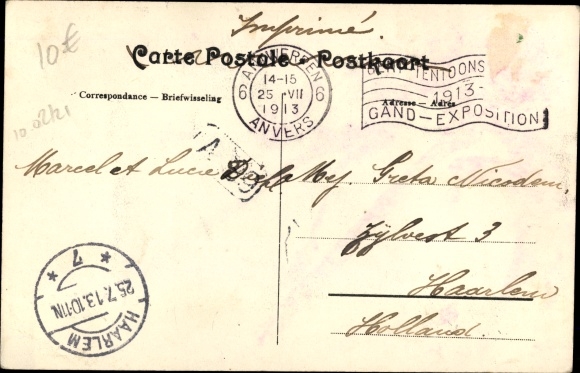 Imprimé.
10€
Carte Postale Postkaart
ANTWERPEN
6 6
14-15
25 VII
1913
ANVERS
GENT-TENTOONS
1913-
GAND-EXPOSITION
Correspondance — Briefwisseling
Adresse — Adrès
Marcel et Lucie
Mej. Greta Nicodem,
Zylvest 3
Haarlem
Holland.
7
25.7.13.10-11N.
HAARLEM